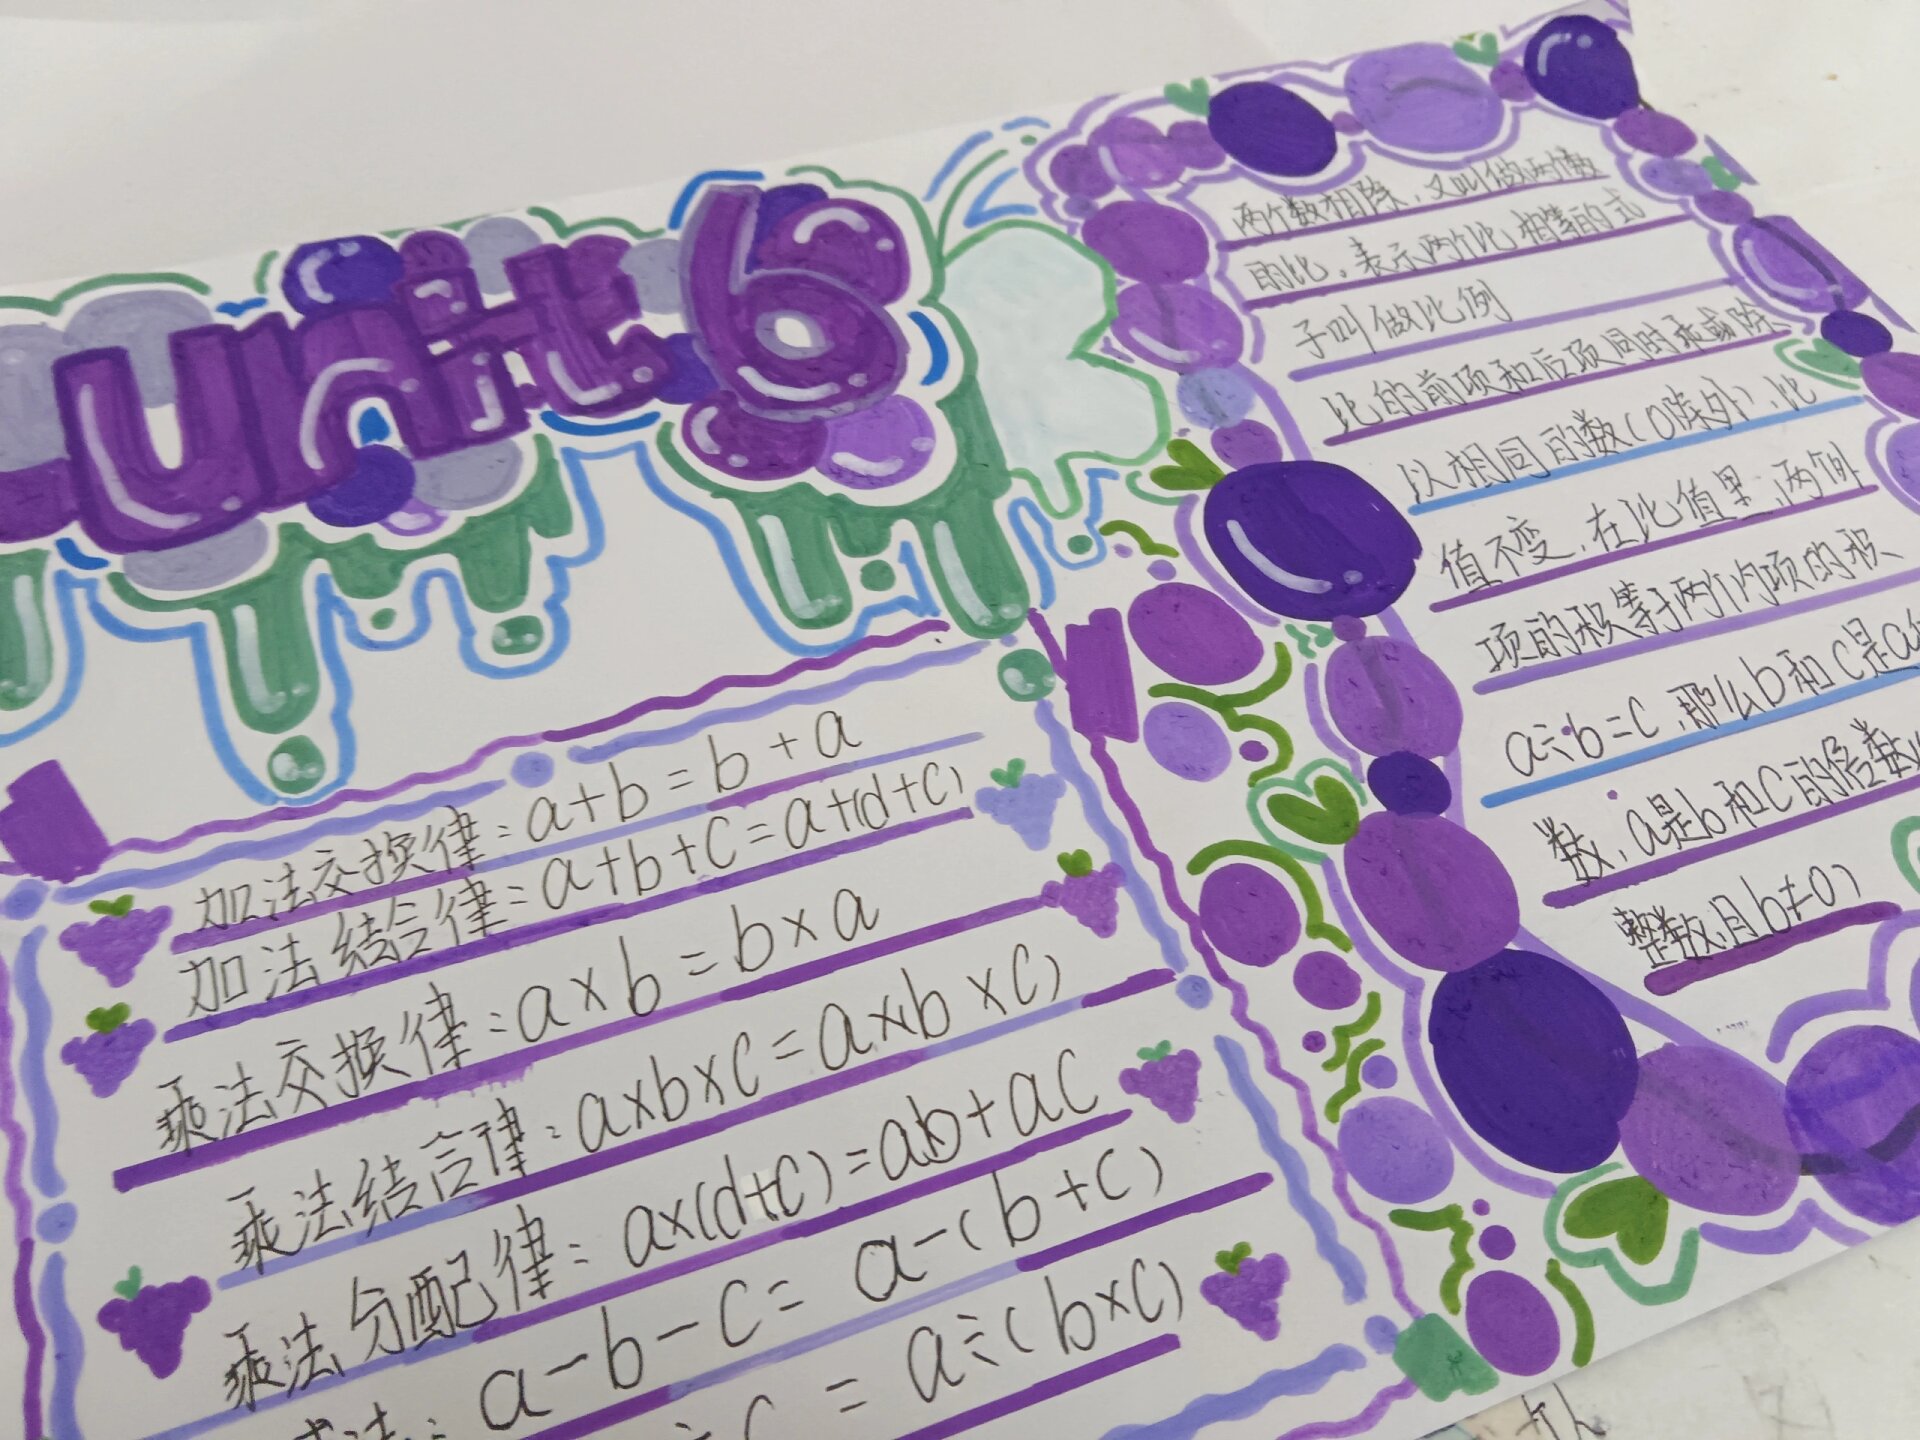 unit 6
加法交换律：a+b=b+a
加法结合律：a+b+c=a+(d+c)
乘法交换律：a×b=b×a
乘法结合律：a×b×c=a×(b×c)
乘法分配律：a×(d+c)=ab+ac
a-b-c=a-(b+c)
c=a÷(b×c)
两个数相除，又叫做两个数
的比，表示两个比相等的式
子叫做比例
比的前项和后项同时乘或除
以相同的数(0除外)，比
值不变，在比值里，两个外
项的积等于两个内项的积、
a÷b=c，那么b和c是a
数，a是b和c的倍数
整数，且b≠0)